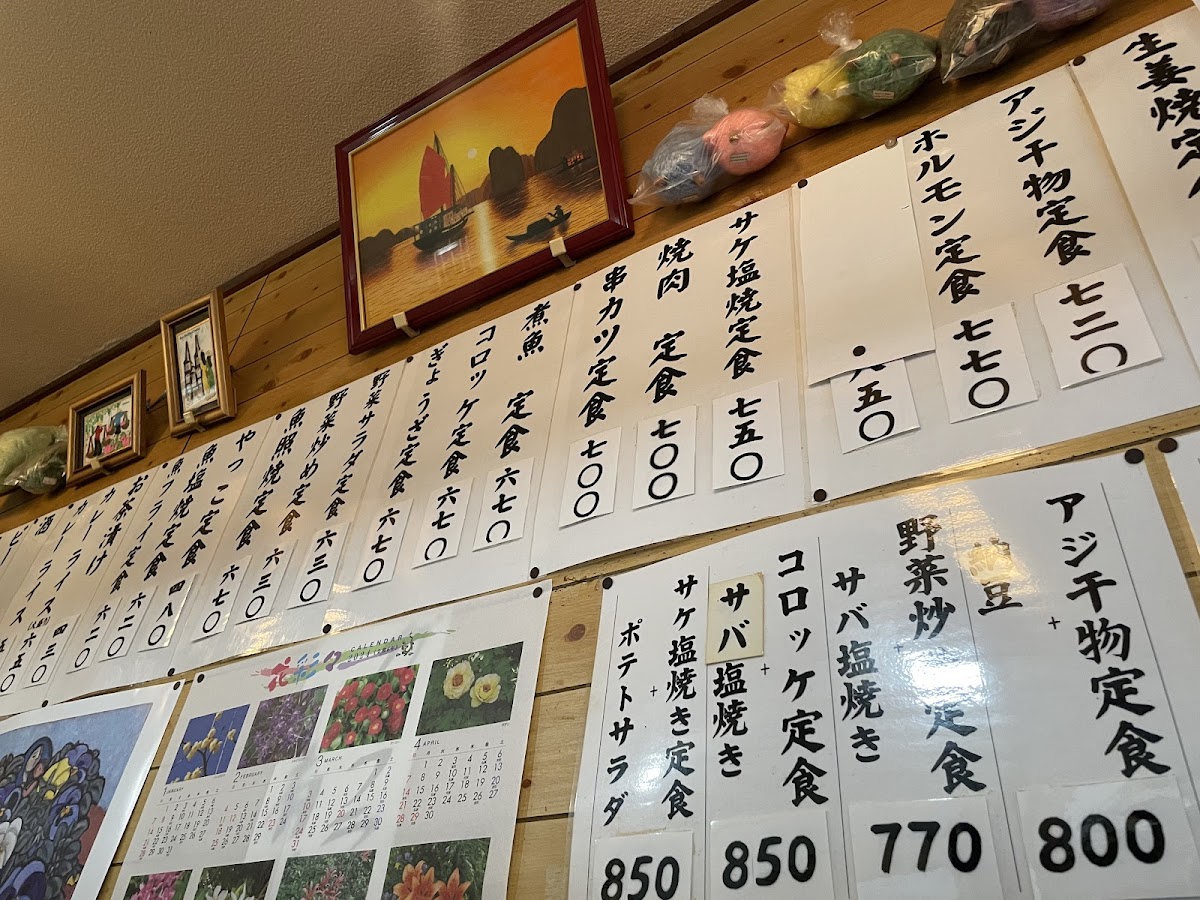 生姜焼定
アジ干物定食 七二〇
ホルモン定食 七七〇
五〇
サケ塩焼定食 七五〇
焼肉 定食 七〇〇
串カツ定食 七〇〇
煮魚 定食 六七〇
コロッケ定食 六七〇
ぎょうざ定食 六七〇
野菜サラダ定食 六三〇
野菜炒め定食 六三〇
魚照焼定食 六七〇
やっこ定食 四八〇
魚塩焼定食 六二〇
魚フライ定食 六二〇
お茶漬け 四三〇
カレーライス(大盛り) 六五〇
カレーライス
酒
アジ干物定食
+
納豆
800
野菜炒め定食
+
サバ塩焼き
770
コロッケ定食
+
サバ塩焼き
850
サケ塩焼き定食
+
ポテトサラダ
850
花彩々
CALENDAR
2024
1 JANUARY
2 FEBRUARY
3 MARCH
4 APRIL